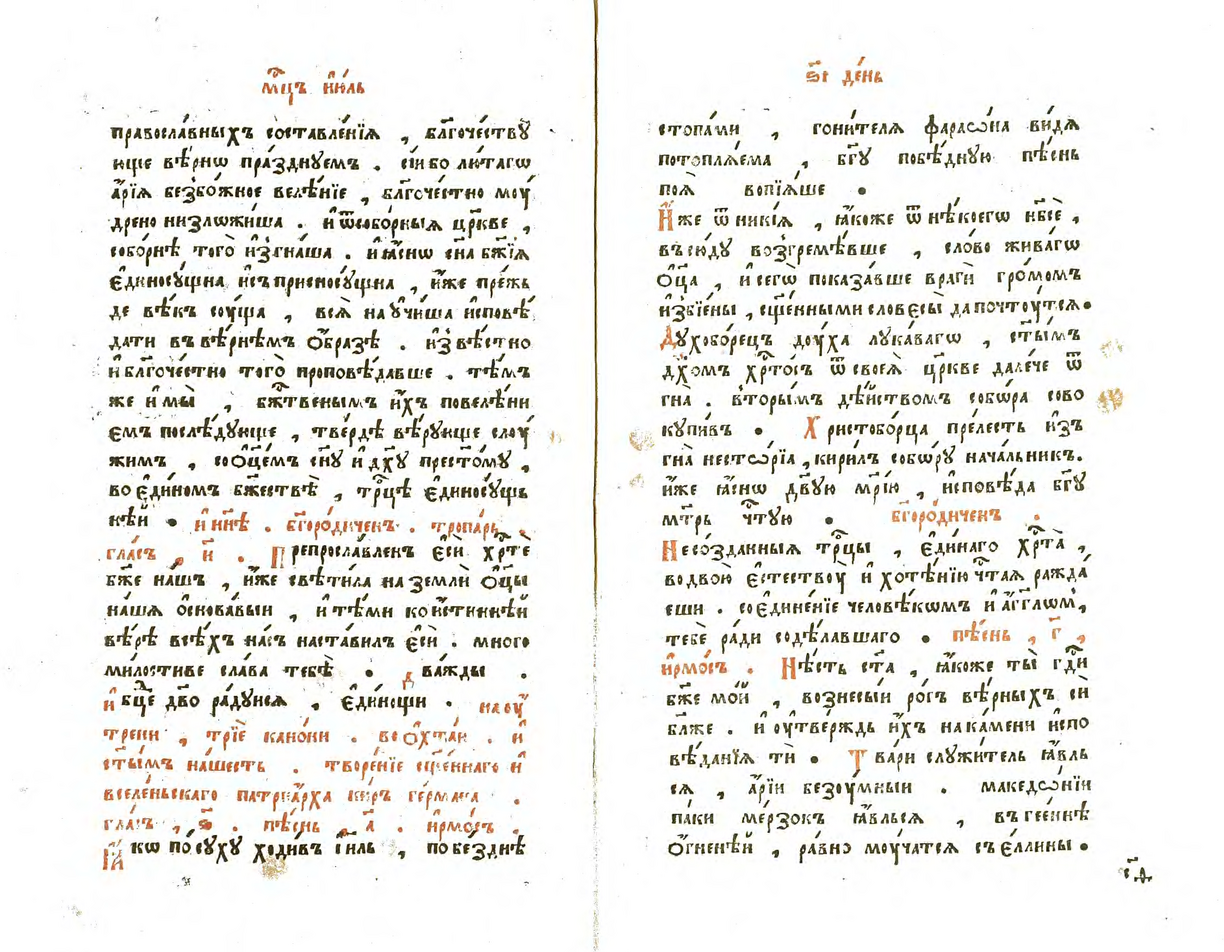 мц҃ъ і҆ю́ль
правосла́вныхъ составле́нїѧ , бл҃гоче́ствꙋ
юще вѣ́рнѡ пра́зднꙋемъ . сі́и бо лю́тагѡ
а҆́рїѧ безбо́жное веле́нїе , бл҃гоче́стно моу́
дрено низлѡжи́ша . и҆ ѿсобо́рныѧ цр҃кве ,
собо́рнѣ того̀ и҆згна́ша . и҆ ꙗ҆́снѡ сн҃а бж҃їѧ
є҆диносꙋ́щна и҆ съприсносꙋ́щна , и҆́же пре́жь
де вѣ́къ соу́ща , всѧ̀ наꙋчи́ша и҆сповѣ́
дати въ вѣ́рнѣмъ ѻ҆́бразѣ . и҆звѣ́стно
и҆ бл҃гоче́стно того̀ проповѣ́давше . тѣ́мъ
же и҆ мы̀ , бж҃твенымъ и҆́хъ повелѣ́ни
емъ послѣ́дꙋюще , тве́рдѣ вѣ́рꙋюще слоу́
жимъ , соѻ҆ц҃е́мъ сн҃ꙋ и҆ дх҃ꙋ прест҃о́мꙋ ,
во є҆ди́номъ бж҃ествѣ̀ , трⷪ҇цѣ є҆диносꙋ́щь
нѣй • и҆ нн҃ѣ . бг҃оро́диченъ . тропа́рь ,
гла́съ , и҃ . Препросла́вленъ є҆сѝ хрⷭ҇тѐ
бж҃е на́шъ , и҆́же свѣти́ла на землѝ ѻ҆ц҃ы̀
на́шѧ ѡ҆снова́выи , и҆ тѣ́ми ко и҆́стиннѣй
вѣ́рѣ всѣ́хъ на́съ наста́вилъ є҆сѝ . много
ми́лостиве сла́ва тебѣ̀ • два́жды .
и҆ бц҃е дв҃о ра́дꙋисѧ , є҆ди́ноши . на оу҆́
трени , трїѐ кано́ни . во ѻ҆хта́и . и҆
ст҃ы́мъ на́шесть . творе́нїе сщ҃е́ннаго и҆
вселе́ньскаго патрїа́рха кѵ́ръ ге́рмана .
гла́съ , ѕ҃ . пѣ́снь , а҃ . і҆рмо́съ .
Ꙗ҆́кѡ по сꙋ́хꙋ ходи́въ і҆и҃ль , по бе́зднѣ
ѕ҃і де́нь
стопа́ми , гони́телѧ фараѡ́на ви́дѧ
потоплѧ́ема , бг҃ꙋ побѣ́днꙋю пѣ́снь
поѧ̀ вопїѧ́ше •
И҆́же ѿ нікі́ѧ , ꙗ҆́коже ѿ нѣ́коегѡ нб҃сѐ ,
въсю́дꙋ возгремѣ́вше , сло́во жива́гѡ
ѻ҆ц҃а̀ , и҆ сегѡ̀ показа́вше врагѝ гро́момъ
и҆збїе́ны , сщ҃е́нными словесы̀ да почтоу́тсѧ •
Дꙋхобо́рецъ доу́ха лꙋка́вагѡ , ст҃ы́мъ
дх҃омъ хрⷭ҇то́съ ѿ своеѧ̀ цр҃кве дале́че ѿ
гна̀ . вторы́мъ дѣ́йствомъ собѡ́ра сово
кꙋпи́въ • Христобо́рца пре́лесть и҆зъ
гна̀ несто́рїа , кири́лъ собѡ́рꙋ нача́льникъ .
и҆́же ꙗ҆́снѡ дв҃ꙋю мр҃їю , и҆сповѣ́да бг҃ꙋ
мт҃рь чⷭ҇тꙋю • бг҃оро́диченъ .
Несо́зданныѧ трⷪ҇цы , є҆ди́наго хрⷭ҇та̀ ,
во двою̀ є҆стествоу̀ и҆ хотѣ́нїю чⷭ҇таѧ ражда́
еши . соедине́нїе человѣ́кѡмъ и҆ а҆́гг҃лѡм ,
тебѐ ради содѣ́лавшаго • пѣ́снь , г҃ ,
і҆рмо́съ . Нѣ́сть ст҃а , ꙗ҆́коже ты̀ гдⷭ҇и
бж҃е мо́й , вознесы́и ро́гъ вѣ́рныхъ сѝ
бл҃же . и҆ оу҆твє́рждь и҆́хъ на ка́мени и҆спо
вѣ́данїѧ тѝ • Тва́ри слꙋжи́тель ꙗ҆́вль
сѧ , а҆́рїи безоу́мныи . македѡ́нїи
па́ки ме́рзокъ ꙗ҆́вльсѧ , въ гее́ннѣ
ѻ҆́гненѣй , ра́внѡ моу́чатсѧ съ є҆́ллины •
с҃д